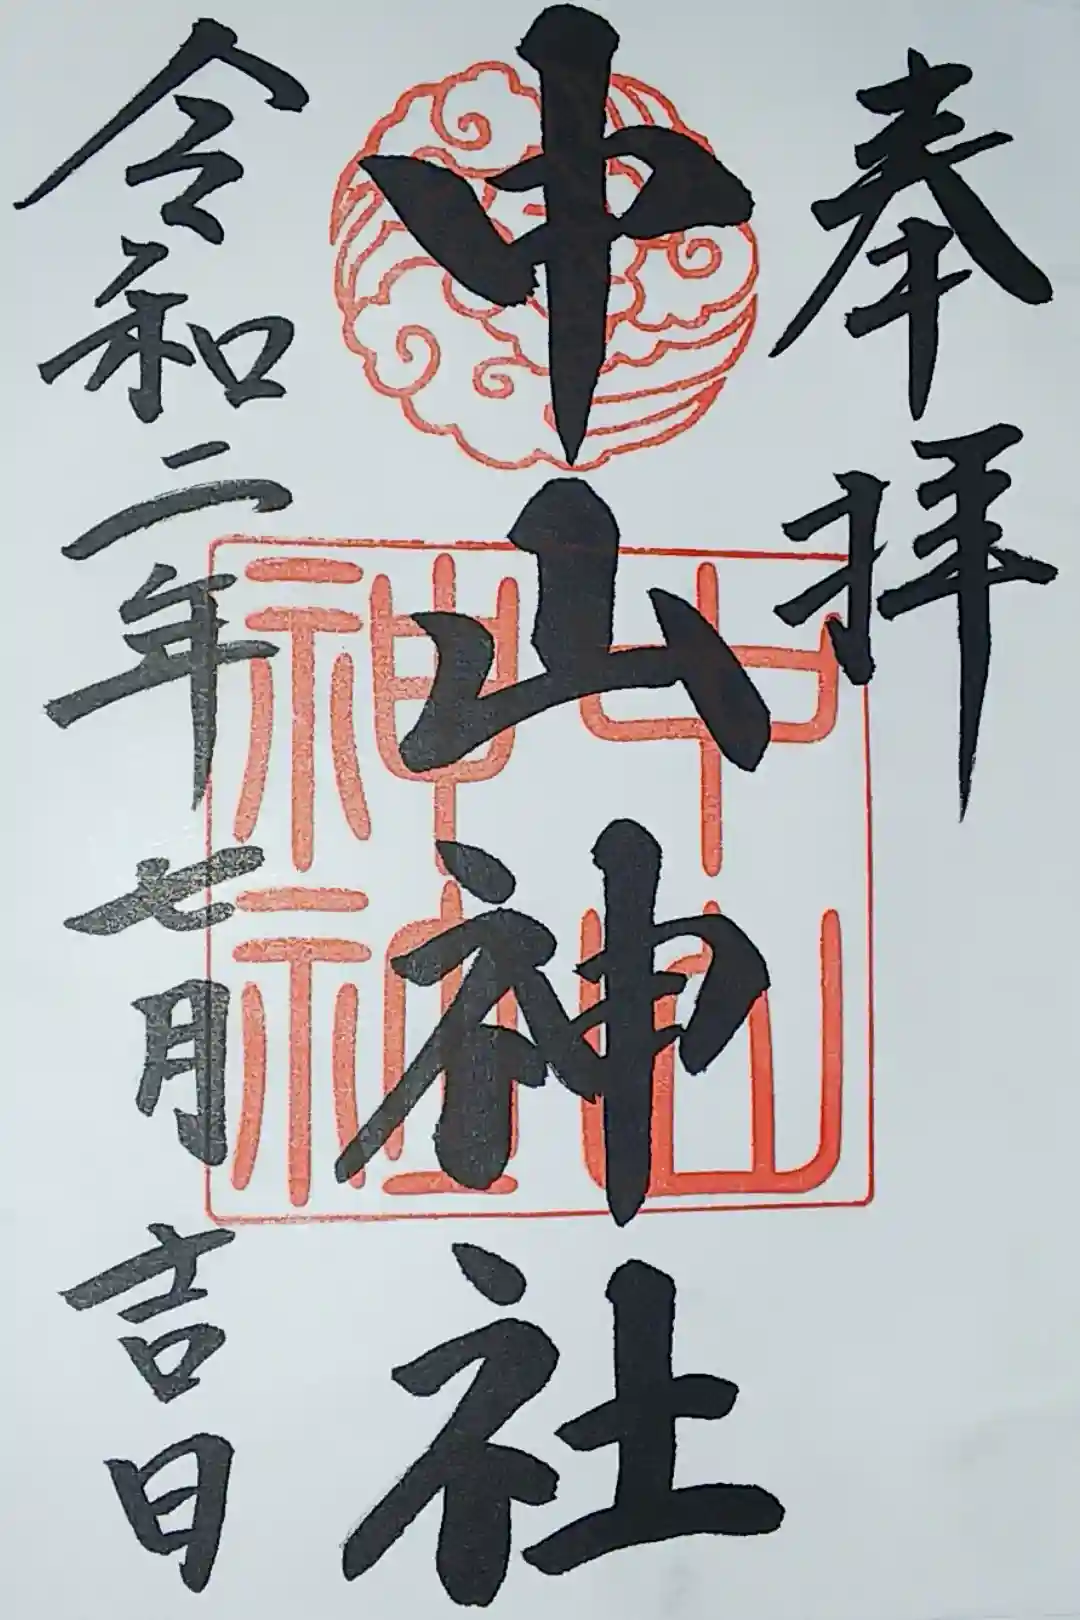 奉拝
中山神社
中山
神社
令和二年七月吉日